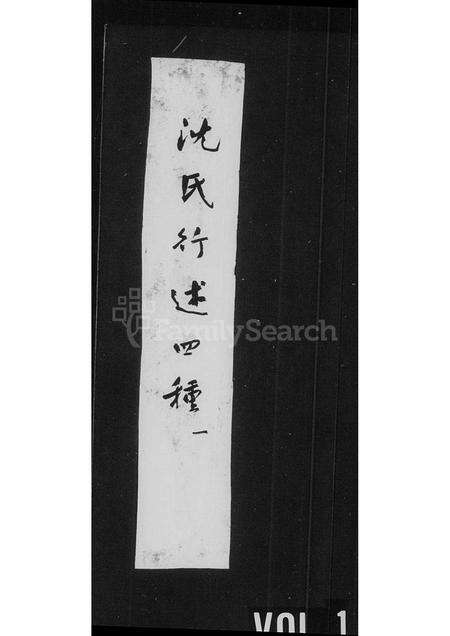 沈氏行述四種
一
FamilySearch
VOL 1